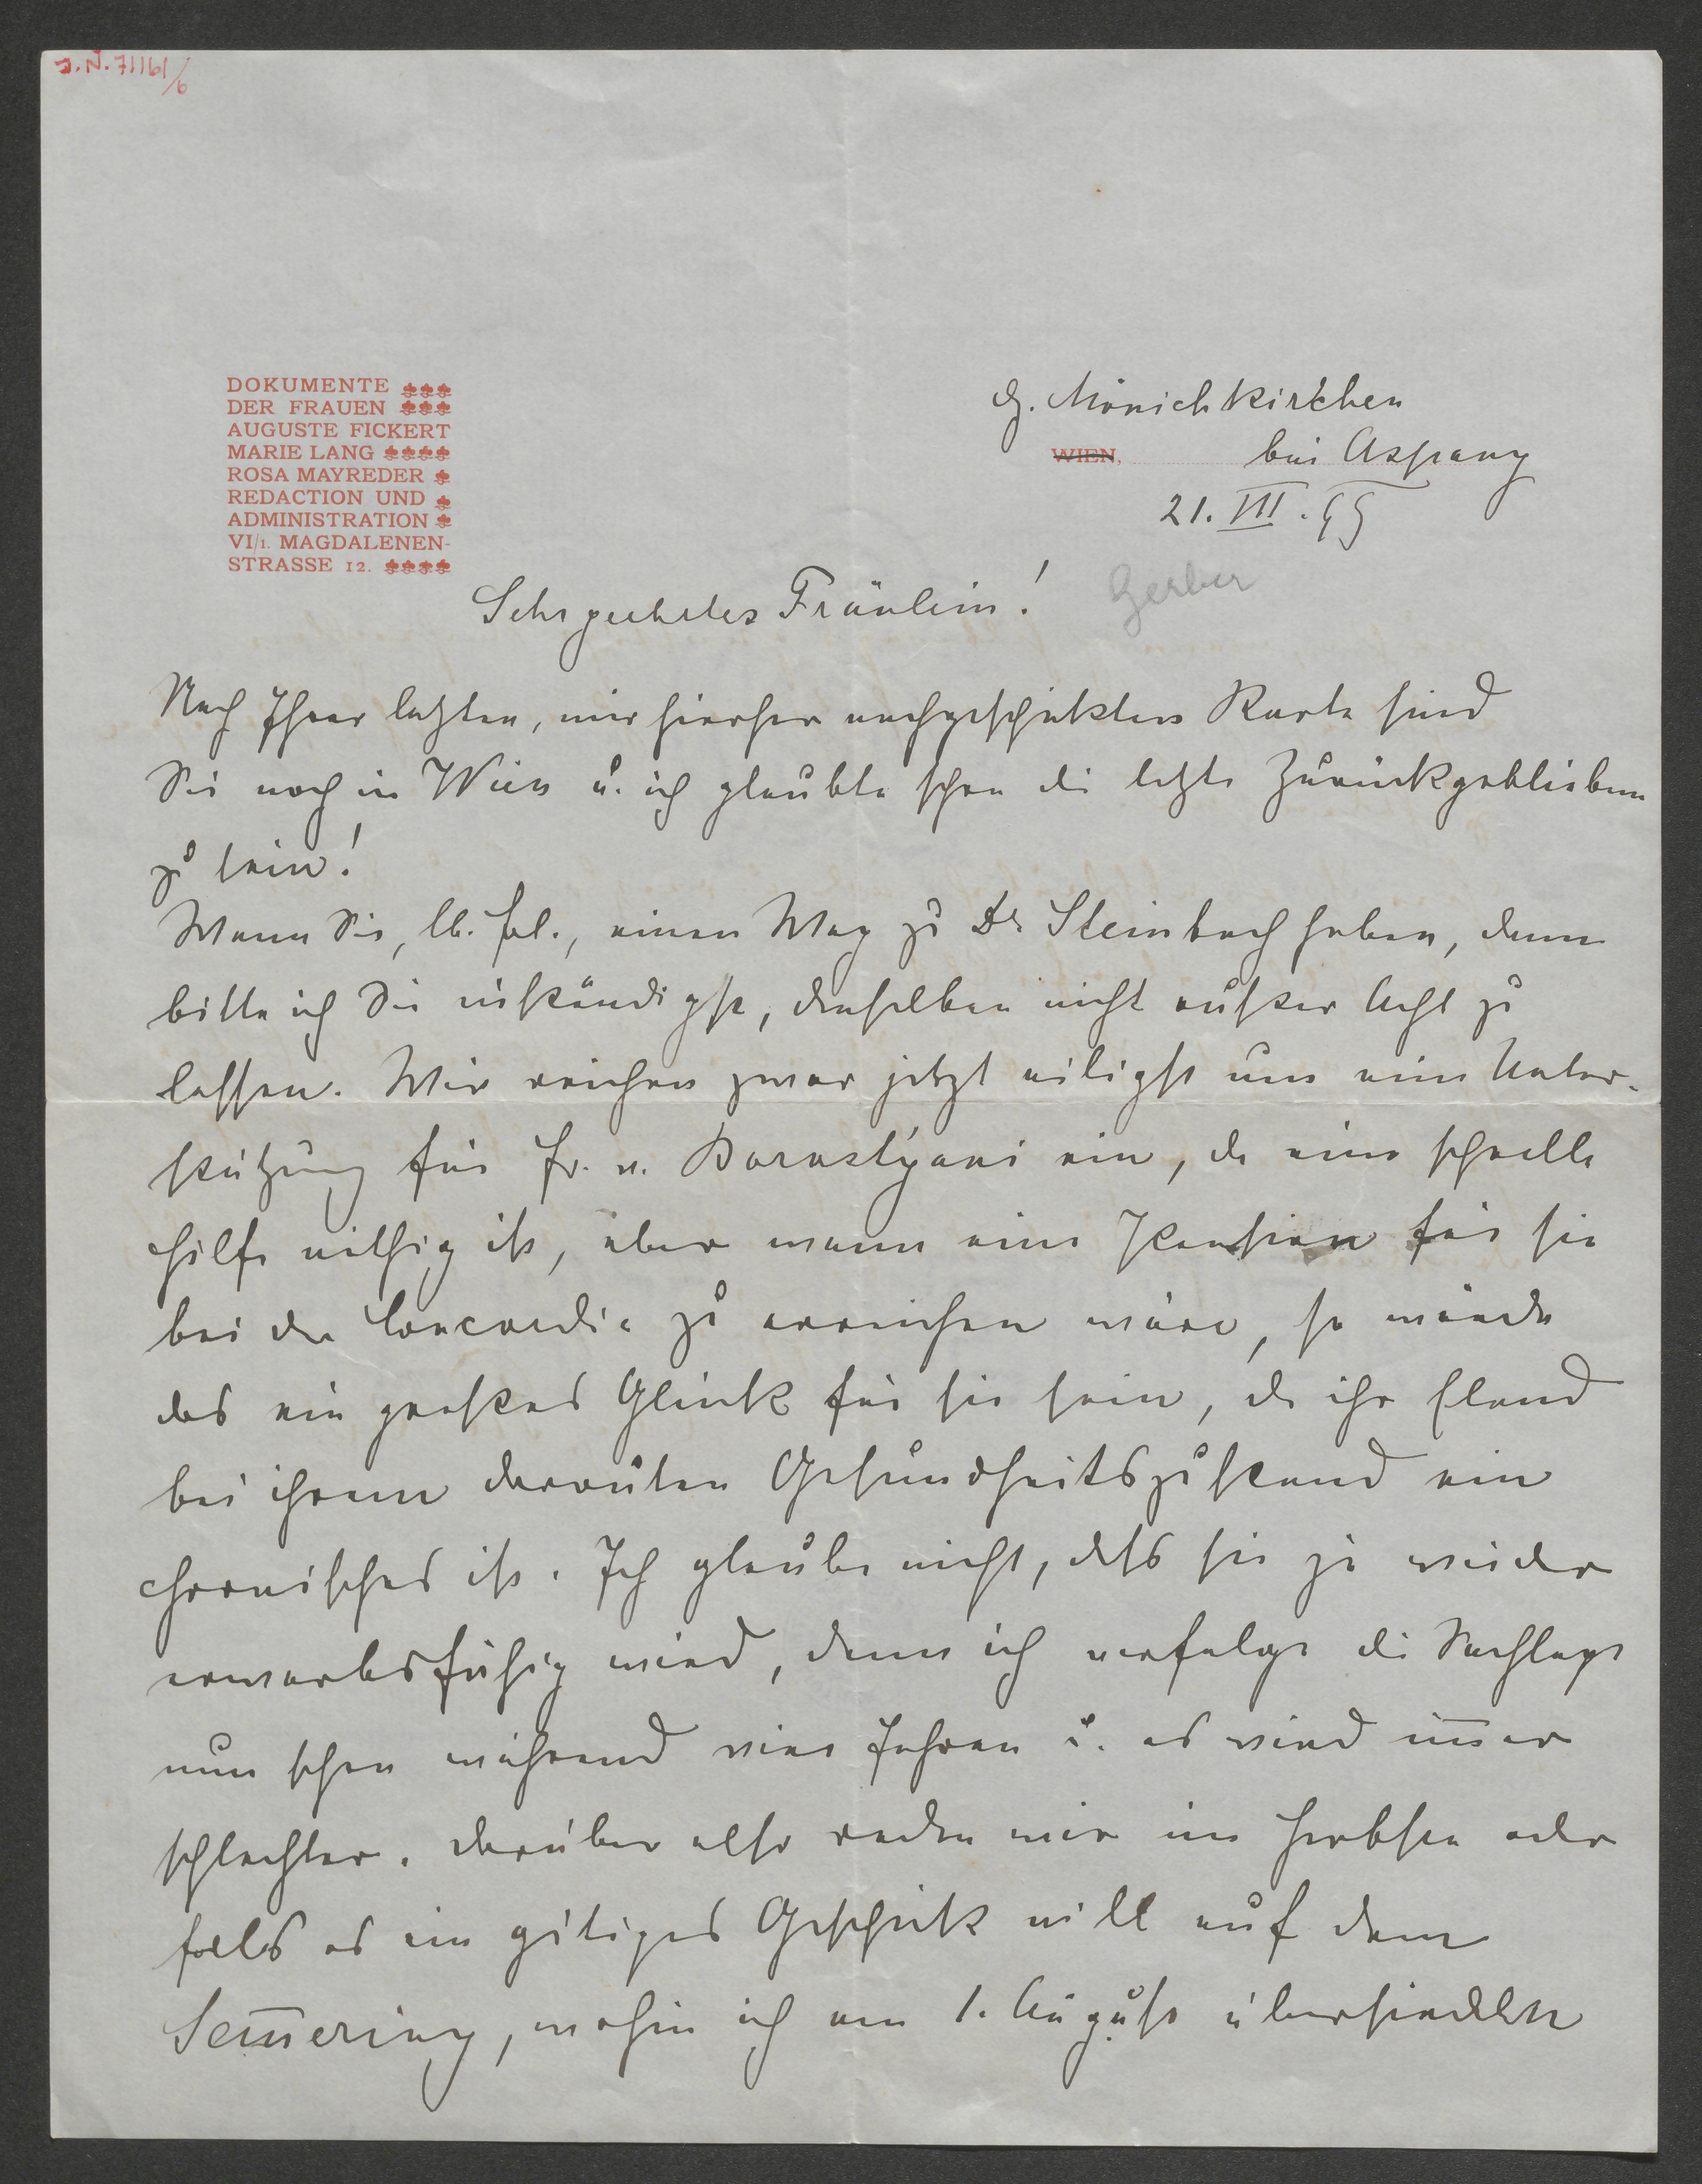 J.N. 71161/6
DOKUMENTE
DER FRAUEN
AUGUSTE FICKERT
MARIE LANG
ROSA MAYREDER
REDACTION UND
ADMINISTRATION
VI/1. MAGDALENEN-
STRASSE 12.
Mönichkirchen
WIEN, bei Aspang
21. VII. 99
Sehr geehrtes Fräulein! Gerber
Nach Ihrer letzten, mir hierher nachgeschickten Karte sind
Sie noch in Wien u. ich glaubte schon die letzte Zurückgebliebene
zu sein!
Wenn Sie, lb. Frl., einen Weg zu Dr Steinbach haben, dann
bitte ich Sie inständigst, denselben nicht außer Acht zu
lassen. Wir reichen zwar jetzt eiligst um eine Unter-
stützung für Fr. v. ein, da eine schnelle
Hilfe nöthig ist, aber wenn eine Pension für sie
bei der Concordia zu erreichen wäre, so würde
das ein großes Glück für sie sein, da ihr Elend
bei ihrem derouten Gesundheitszustand ein
chronisches ist. Ich glaube nicht, dass sie je wieder
erwerbsfähig wird, denn ich verfolge die Sachlage
nun schon während vier Jahren u. es wird im̅er
schlechter. Darüber also reden wir im Herbste oder
falls es ein gütiges Geschick will auf dem
Sem̅ering, wohin ich am 1. August übersiedle